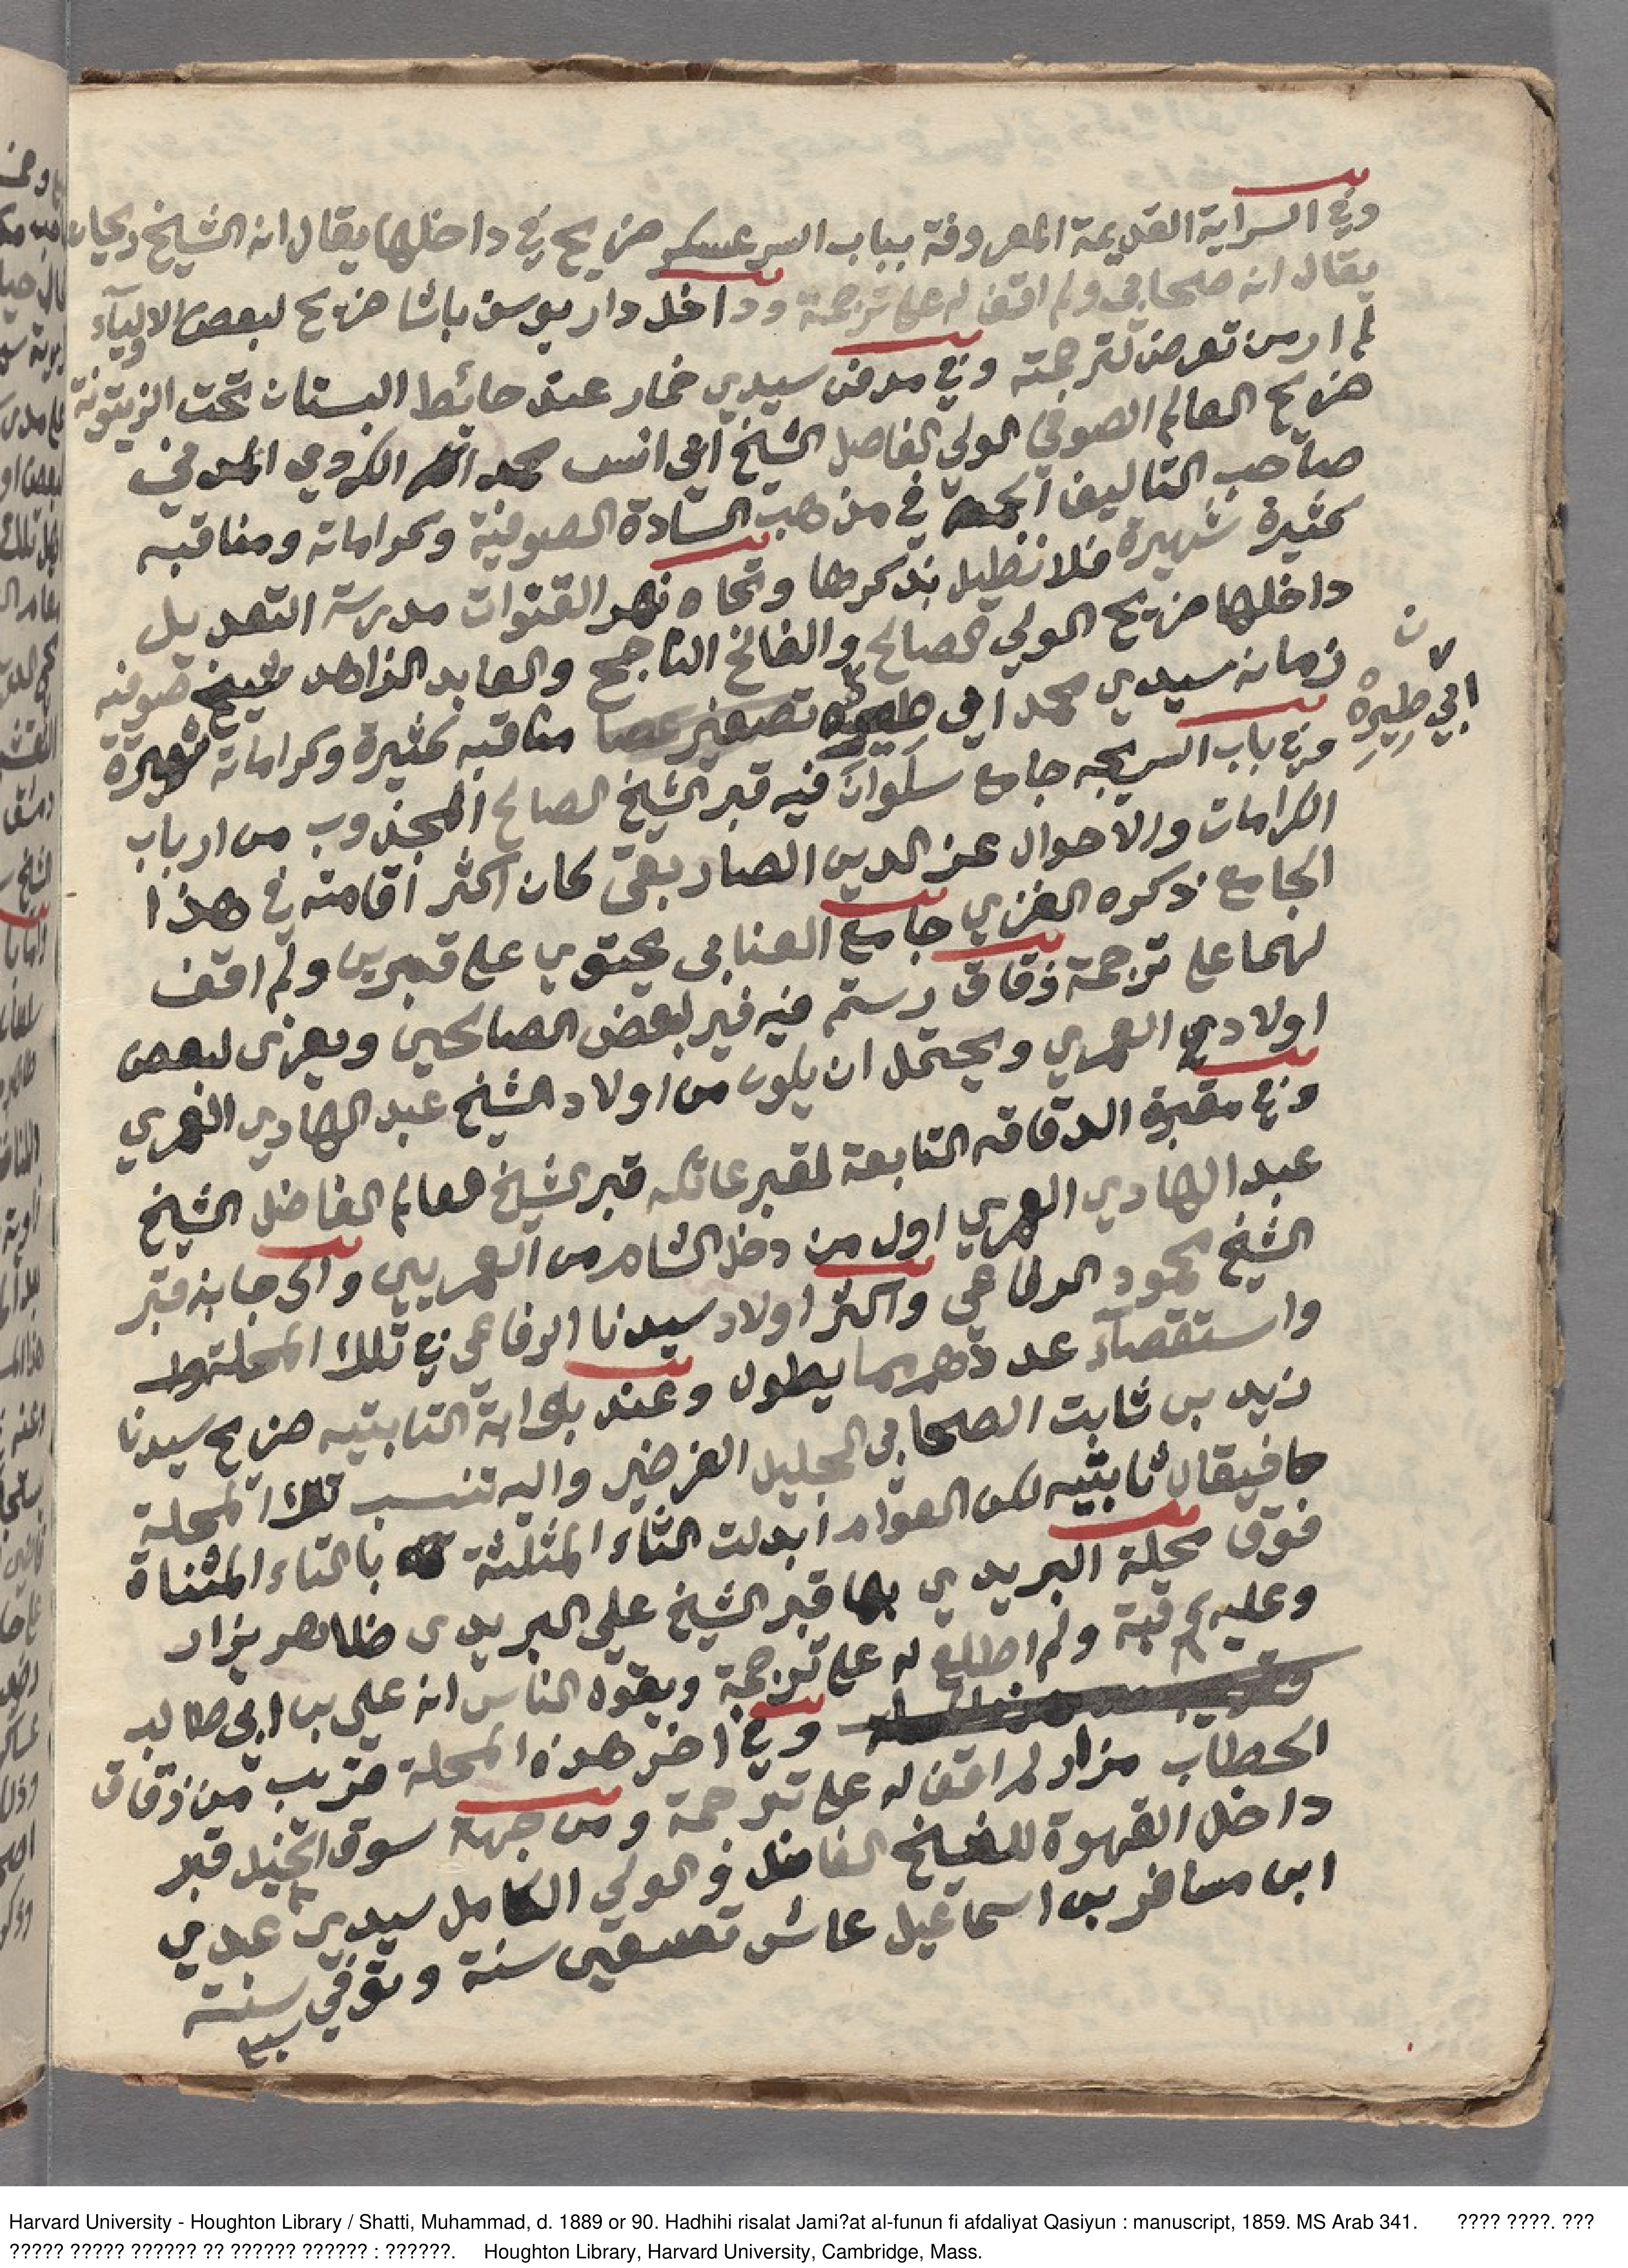 وفي السراية القديمة المعروفة بباب السر عسكر ضريح في داخلها يقال انه الشيخ ريحان
يقال انه صحابي ولم اقف له على ترجمة وداخل دار يوسف باشا ضريح لبعض الاوليآء
لم ار من تعرض لترجمته وفي مدفن سيدي خمار عند حائيط البستان تحت الزيتونة
ضريح العالم الصوفي الولي الفاضل الشيخ ابي انس محمد الكردي المدفي
صاحب التاليف في مذهب السادة الصوفية وكراماته ومناقبه
كثيرة شهيرة فلا نطيل بذكرها وتجاه نهر القنوات مدرسة التعديل
داخلها ضريح الولي الصالح والفالح الناجح والعابد الزاهد شيخ صوفيه
زمانه سيدي محمد ابي مناقبه كثيرة وكراماته شهيرة
ابي طيره
وفي باب السريجه جامع سلوان فيه قبر الشيخ الصالح المجذوب من ارباب
الكرامات والاحوال عز الدين الصاريقي كان اكثر اقامته في هذا
الجامع ذكره الغزي جامع العنابي يحتوي على قبرين ولم اقف
لهما على ترجمة زقاق رستم فيه قبر لبعض الصالحين ويعزى لبعض
اولادي العمري ويحتمل ان يكون من اولاد الشيخ عبد الهادي العمري
وفي مقبرة الدقاقه التابعة لمقبر عاتكه قبر الشيخ العالم الفاضل الشيخ
عبد الهادي العمري اول من دخل الشام من العمريين والى جابنه قبر
الشيخ محمود الرفاعي واكثر اولاد سيدنا الرفاعي في تلك المحلة
واستقصآء عددهم مما يطول وعند بوابة التابتيه ضريح سيدنا
زيد بن ثابت الصحابي الجليل الفرضي واليه تنسب تلك المحلة
كا فيقال ثابتيه لكن العوام ابدلت الثاء المثلثة بالتاء المثناة
فوق محلة البريدي بها قبر الشيخ علي البريدي ظاهر يزار
وعليه قبة ولم اطلع له على ترجمة ويقول الناس انه علي بن ابي طالب
وفي اخر هذه المحلة قريب من زقاق
الحطاب مزار لم اقف له على ترجمة ومن جهة سوق الخيل قبر
داخل القهوة للشيخ الفاضل والولي الكامل سيدي عدي
ابن مسافر بن اسماعيل عاش تسعين سنة وتوفي سنة